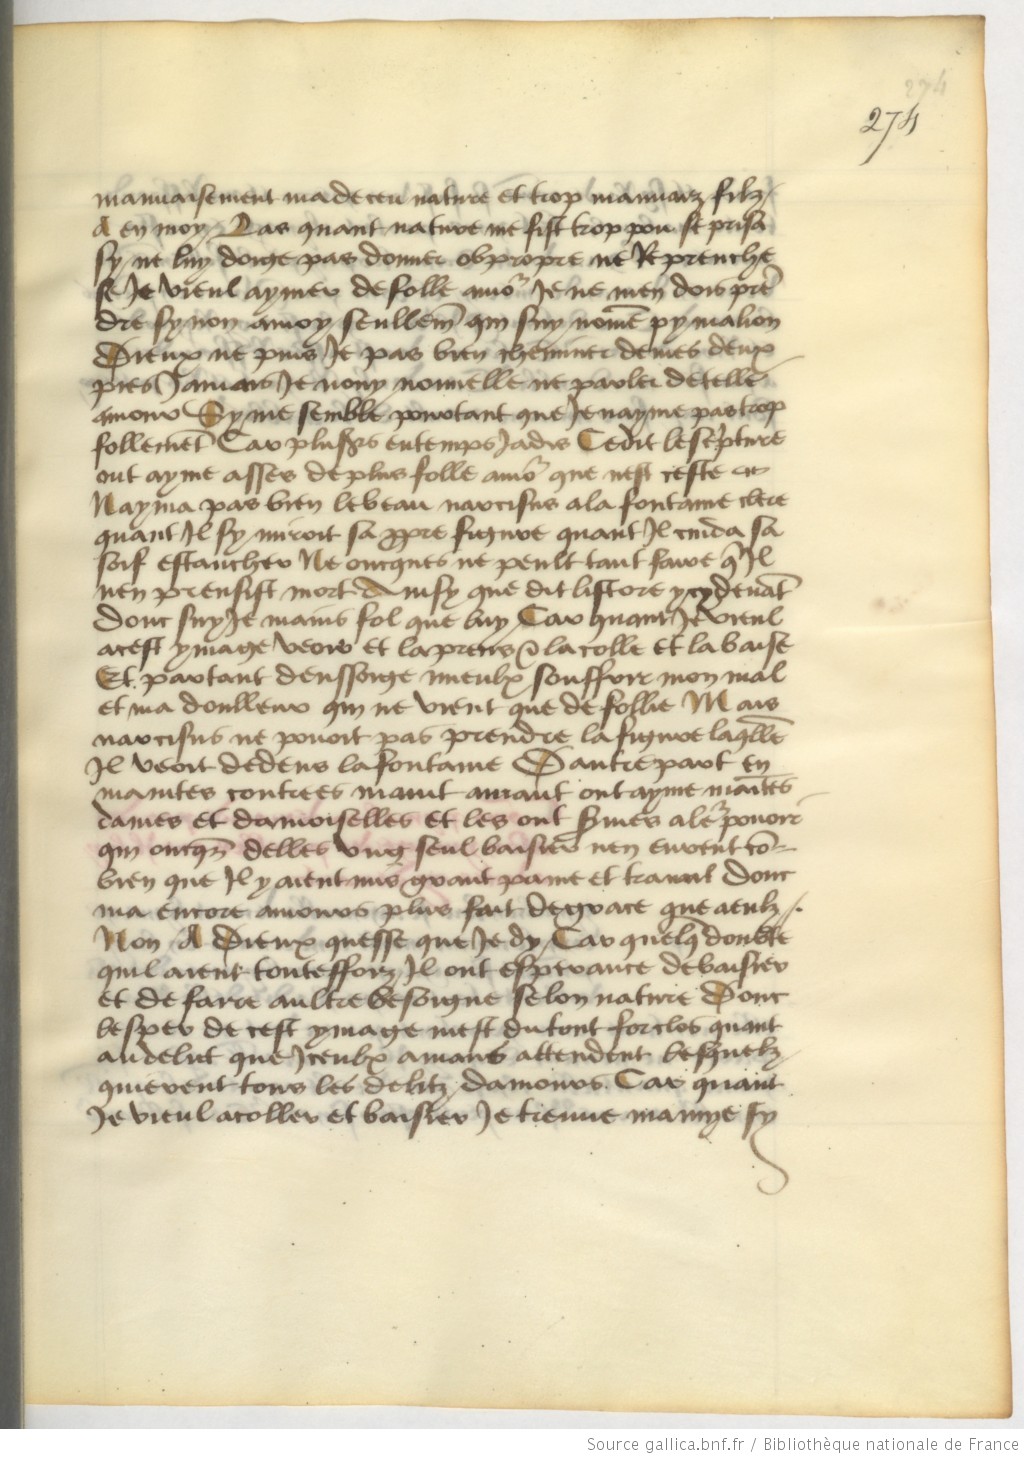 274
274
mauvaisement ma deceu nature et trop mauvaiz filz
A en moy Las quant nature me fist trop pou se prisa
sy ne luy doige pas donner obpropre ne Reprenche
se Je vieul aymer de folle amo᷑ Je ne men dois prē
dre sy non a moy seullem̄t qui suy nōme pymalion
Dieux ne puis Je pas bien cheminer de mes deux
piez Jamais Je nouy nouvelle ne parler de telle
amour Sy me semble pourtant que Je nayme pas trop
follemēt Car plus͛s en temps Jadis Ce dit lescripture
ont ayme asses de plus folle amo᷑ que nest ceste
Nayma pas bien le beau narcisus a la fontaine clere
quant Il sy miroit sa ꝓpre figure quant Il cuida sa
soif estancher Ne oncques ne peult tant faire q̄ Il
nen prensist mort Ainsy que dit listore y cy devāt
Donc suy Je mains fol que luy Car quant Je vieul
a cest ymage veoir et la prens la colle et la baise
Et partant deussoige mieulx souffrir mon mal
et ma doulleur qui ne vient que de follie Mais
narcisus ne povoit pas prendre la figure laq̄lle
Il veoit dedens la fontaine Dautre part en
maintes contrees maint amant ont ayme maītes
dames et damoiselles et les ont servies a le᷑ povoir
qui oncq̄s delles ung seul baisier nen eurent cō
bien que Il y aient mis grant paine et travail Donc
ma encore amours plus fait de grace que a eulx
Non A Dieux quesse que Je dy Car quelq̄ doubte
quil aient touteffoiz Il ont esperance de baisier
et de faire aultre besongne selon nature Donc
lesper de cest ymage mest du tout forclos quant
au delit que Iceulx amans attendent lesquelz
quierent tous les delitz damours Car quant
Je vieul acoller et baisier Je treuve mamye sy
Source gallica.bnf.fr / Bibliothèque nationale de France